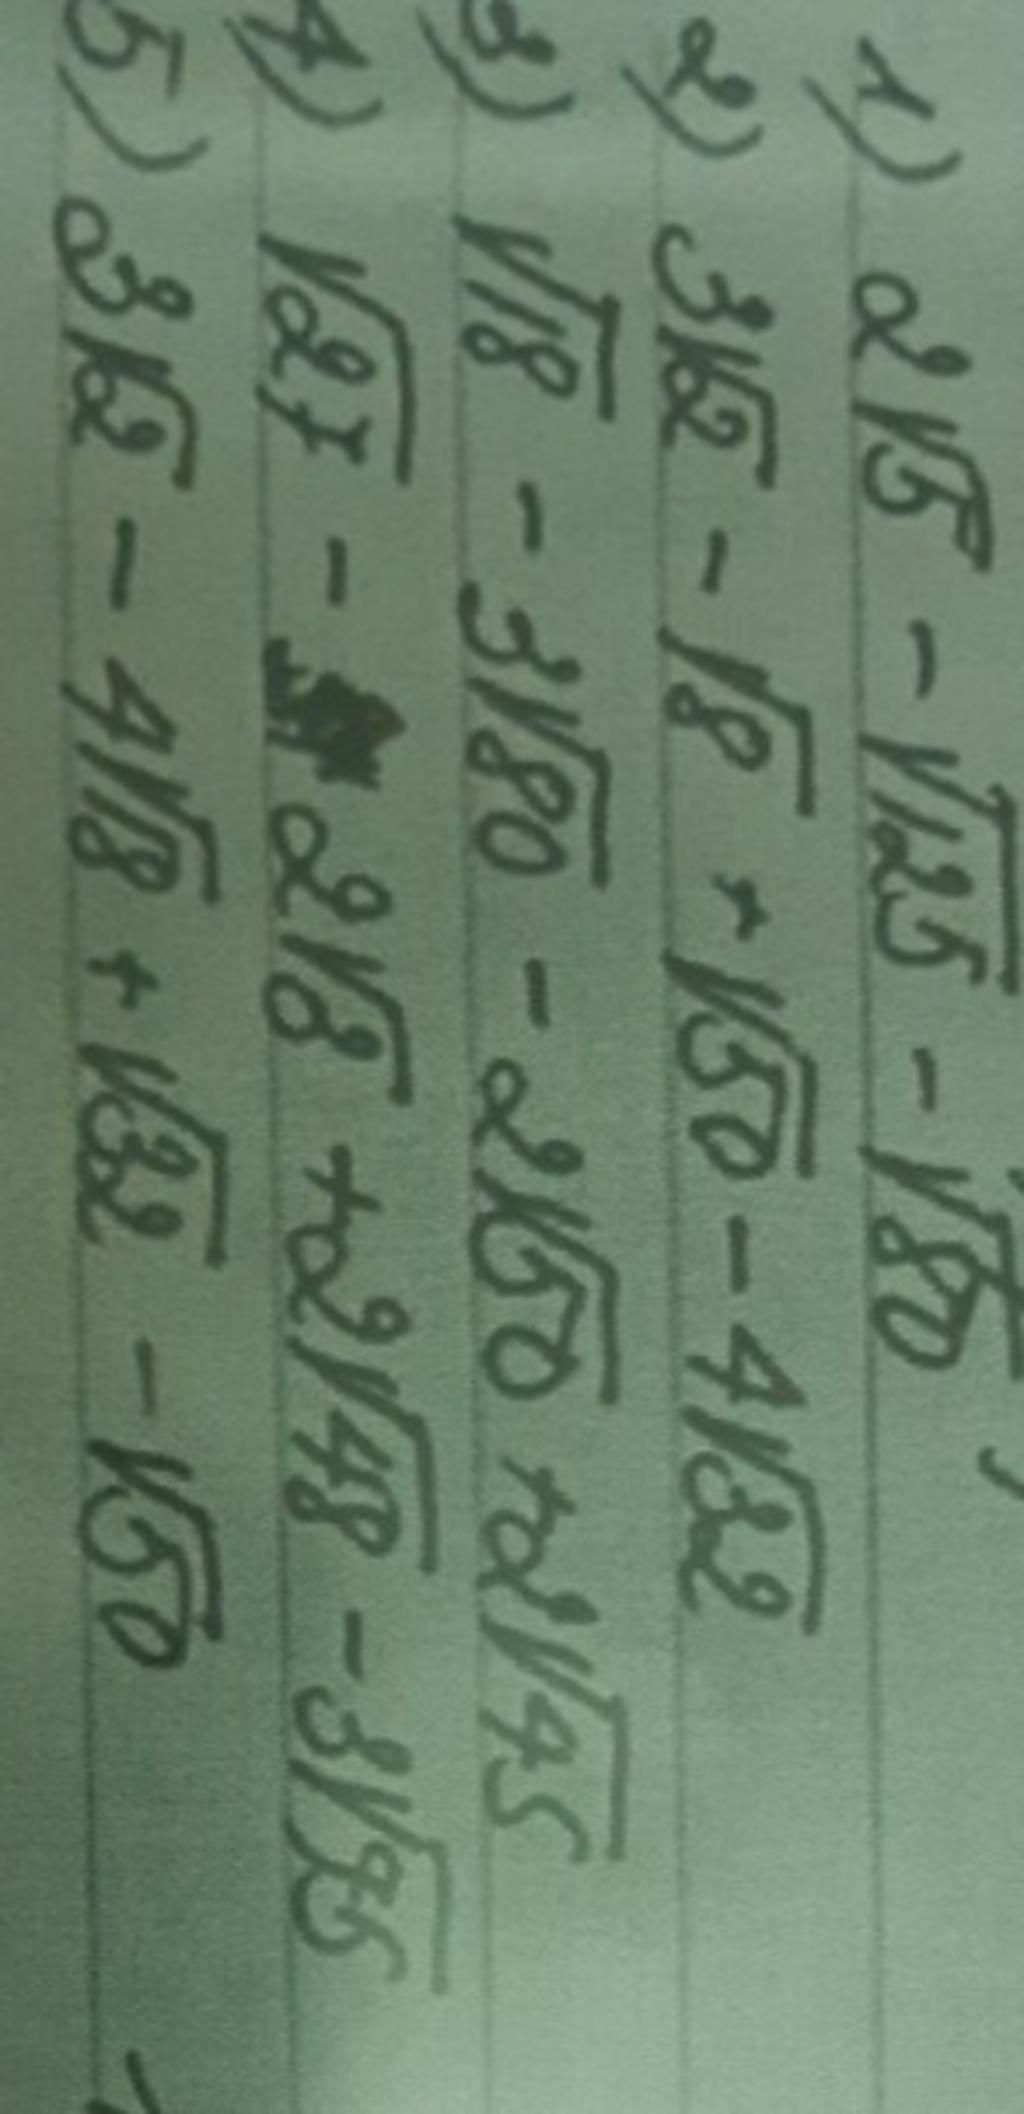 1) 2√5 - √125 - √80
2) 3√2 - √8 + √50 - 4√32
3) √18 - 3√80 - 2√50 + 2√45
4) √27 - 2√8 + 2√48 -
5) 3√2 - 4√18 + √32 - √50